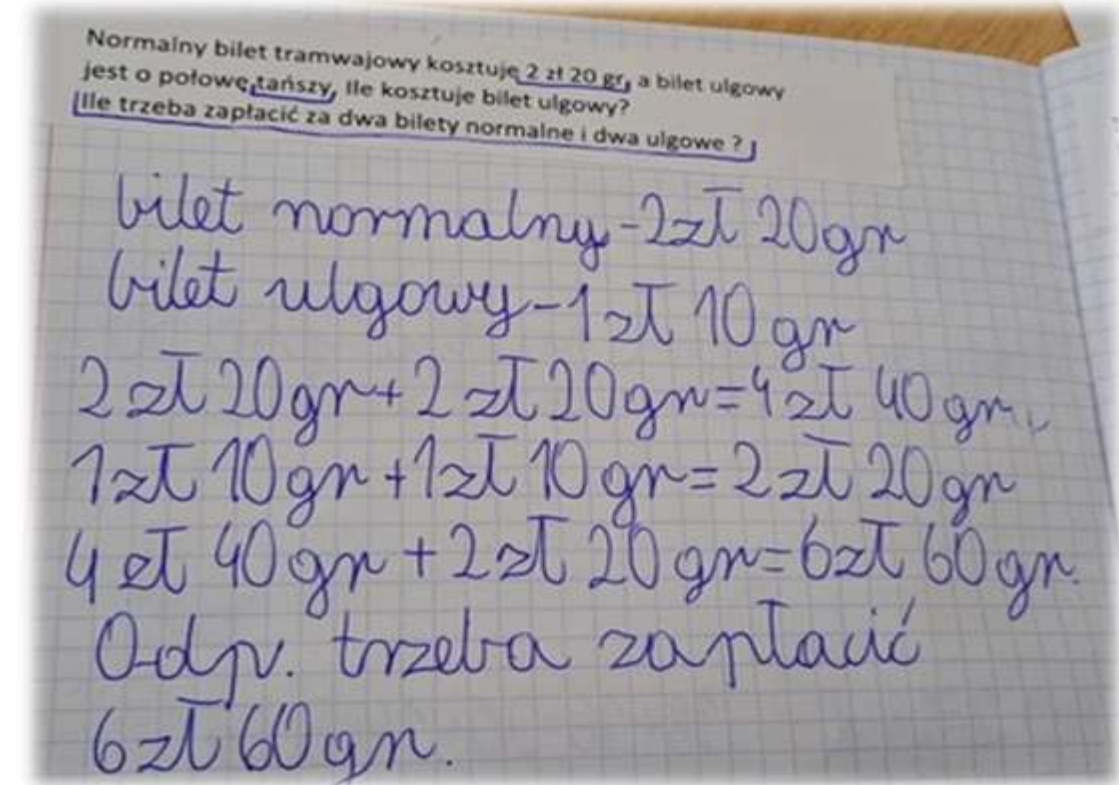 Normalny bilet tramwajowy kosztuje 2 zł 20 gr, a bilet ulgowy
jest o połowę tańszy, Ile kosztuje bilet ulgowy?
Ile trzeba zapłacić za dwa bilety normalne i dwa ulgowe ?
bilet normalny-2zł 20gr
bilet ulgowy-1zł 10gr
2zł 20gr+2zł 20gr=4zł 40gr.
1zł 10gr+1zł 10gr=2zł 20gr
4zł 40gr+2zł 20gr=6zł 60gr.
Odp. trzeba zapłacić
6zł 60gr.